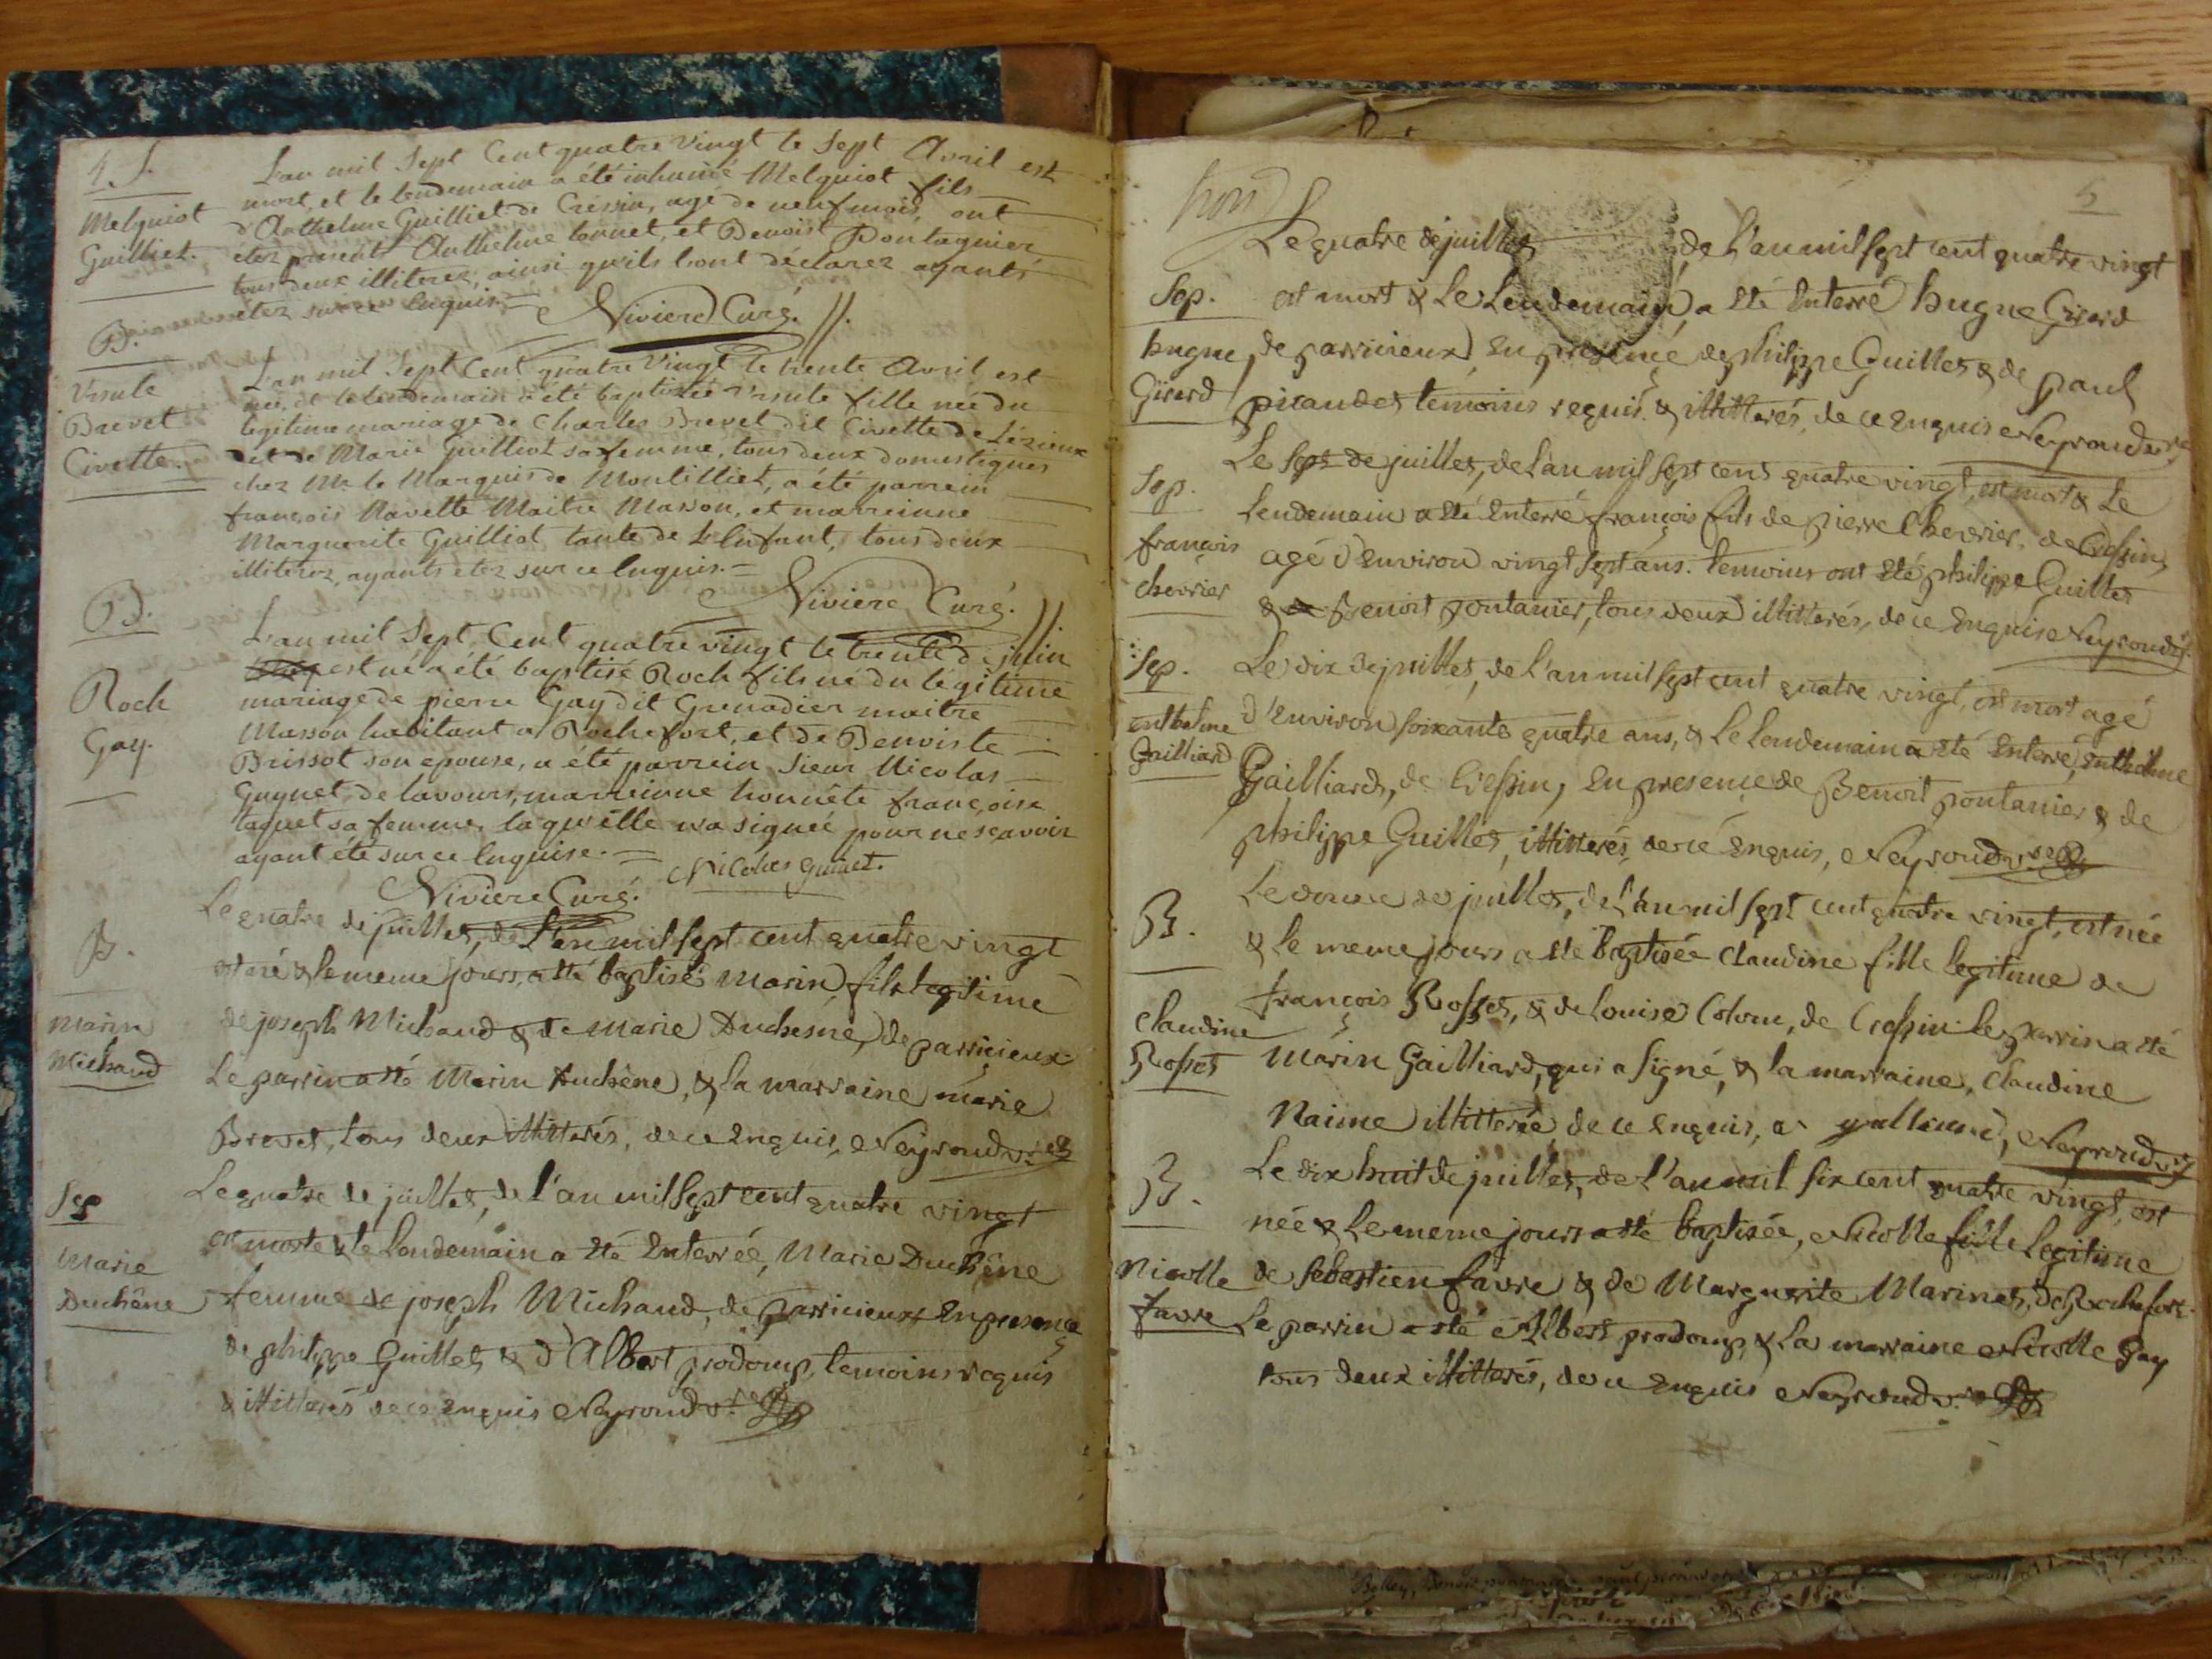 4. S.
Melguiot
Guilliet.
L'an mil Sept Cent quatre vingt le Sept Avril est
mort, et le lendemain a été inhumé Melguiot fils
d'Anthelme Guilliet de Cressin, agé de neuf mois, ont
étez presents Anthelme tonnet, et Benoist Pontagnier
tous deux illiterez, ainsi qu'ils l'ont déclarez ayants
étez sur ce Enquis. =
Niviere Curé.
B.
Ursule
Brevet
Civette.
L'an mil Sept Cent quatre vingt le trente Avril est
née, et le lendemain a été baptisée Ursule fille née du
legitime mariage de Charles Brevet dit Civette de Lézieux
et de Marie Guilliot sa femme, tous deux domestiques
chez Mr. le Marquis de Montillet, a été parrein
françois Navette Maitre Masson, et marreinne
Marguerite Guilliot tante de L'Enfant, tous deux
illiterez, ayants etez sur ce Enquis. =
Niviere Curé.
B.
Roch
Gay.
L'an mil Sept Cent quatre vingt le trente de juin
est né a été baptisé Roch fils né du legitime
mariage de pierre Gay dit Grenadier maitre
Masson habitant a Rochefort, et de Benoiste
Brissot son epouse, a été parrein Sieur Nicolas
Guynet de lavours, marreinne honnête françoise
taquet sa femme, laqu'elle n'a signée pour ne sçavoir
ayant été sur ce Enquise. =
Nicolas guinet.
Niviere Curé.
B.
Marin
Michaud
Le quatre de juillet, de L'an mil sept cent quatre vingt
est né & le meme jours, a été baptisé Marin, fils legitime
de joseph Michaud & de Marie Duchesne, de parricieux
Le parrin a été Marin Duchêne, & la marraine marie
Brevet, tous deux illitterés, de ce Enquis, Neyroud
Sep
Marie
Duchêne
Le quatre de juillet, de l'an mil sept cent quatre vingt
est morte & le Lendemain a été Enterrée, Marie Duchêne
femme de joseph Michaud, de parricieux En presence
de philippe Guillet & d'Albert prodomp, temoins requis
& illitterés de ce Enquis Neyroud
5
Sep.
hugue
Girard
Le quatre de juillet, de L'an mil sept cent quatre vingt
est mort & Le Lendemain, a été Enterré hugue Girard
de parricieux, En presence de philippe Guillet & de paul
picaudet temoins requis & illitterés, de ce Enquis Neyroud
Sep.
françois
chevrier
Le sept de juillet, de L'an mil sept cent quatre vingt, est mort & Le
Lendemain a été Enterré françois fils de pierre Chevrier, de Cressin,
agé d'Environ vingt sept ans. temoins ont été philippe Guillet
& Benoit pontanier, tous deux illitterés, de ce Enquis Neyroud
Sep.
enthelme
Gailliard
Le dix de juillet, de L'an mil sept cent quatre vingt, est mort agé
d'Environ soixante quatre ans, & Le Lendemain a été Enterré, Enthelme
Gailliard, de Cressin, En presence de Benoit pontanier & de
philippe Guillet, illitterés, de ce Enquis, Neyroud
B.
Claudine
Rosset
Le douze de juillet, de L'an mil sept cent quatre vingt, est née
& Le meme jours a été baptisée Claudine fille legitime de
françois Rosset, & de Louise Colom, de Cressin Le parrin a été
Marin Gailliard, qui a signé, & la marraine, Claudine
Naime illitterée, de ce Enquis, Neyroud
B.
Nicolle
favre
Le dix huit de juillet, de L'an mil six cent quatre vingt, est
née & Le meme jours a été baptisée, Nicolle fille Legitime
de Sebastien favre & de Marguerite Marinet, de Rochefort.
Le parrin a été Albert prodomp, & La marraine Nicolle Gay
tous deux illitterés, de ce Enquis Neyroud